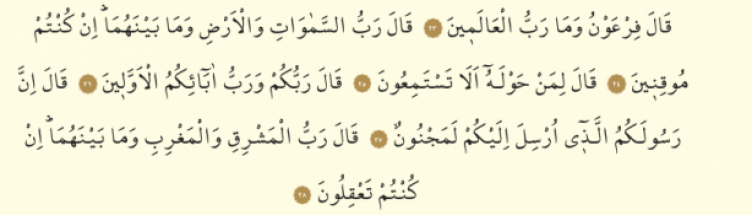 قَالَ فِرْعَوْنُ وَمَا رَبُّ الْعَالَم۪ينَ ﴿٢٣﴾ قَالَ رَبُّ السَّمٰوَاتِ وَالْاَرْضِ وَمَا بَيْنَهُمَاۜ اِنْ كُنْتُمْ
مُوقِن۪ينَ ﴿٢٤﴾ قَالَ لِمَنْ حَوْلَهُٓ اَلَا تَسْتَمِعُونَ ﴿٢٥﴾ قَالَ رَبُّكُمْ وَرَبُّ اٰبَٓائِكُمُ الْاَوَّل۪ينَ ﴿٢٦﴾ قَالَ اِنَّ
رَسُولَكُمُ الَّذ۪ٓي اُرْسِلَ اِلَيْكُمْ لَمَجْنُونٌ ﴿٢٧﴾ قَالَ رَبُّ الْمَشْرِقِ وَالْمَغْرِبِ وَمَا بَيْنَهُمَاۜ اِنْ
كُنْتُمْ تَعْقِلُونَ ﴿٢٨﴾